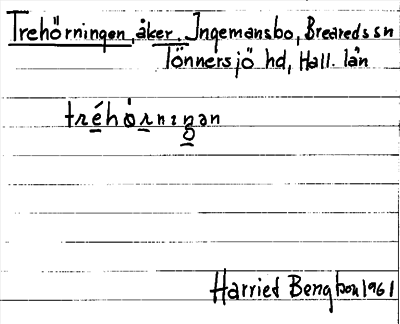 Trehörningen, åker. Ingemansbo, Breareds sn
Tönnersjö hd, Hall. län
tréhȯrnıŋən
Harried Bengtson 1961